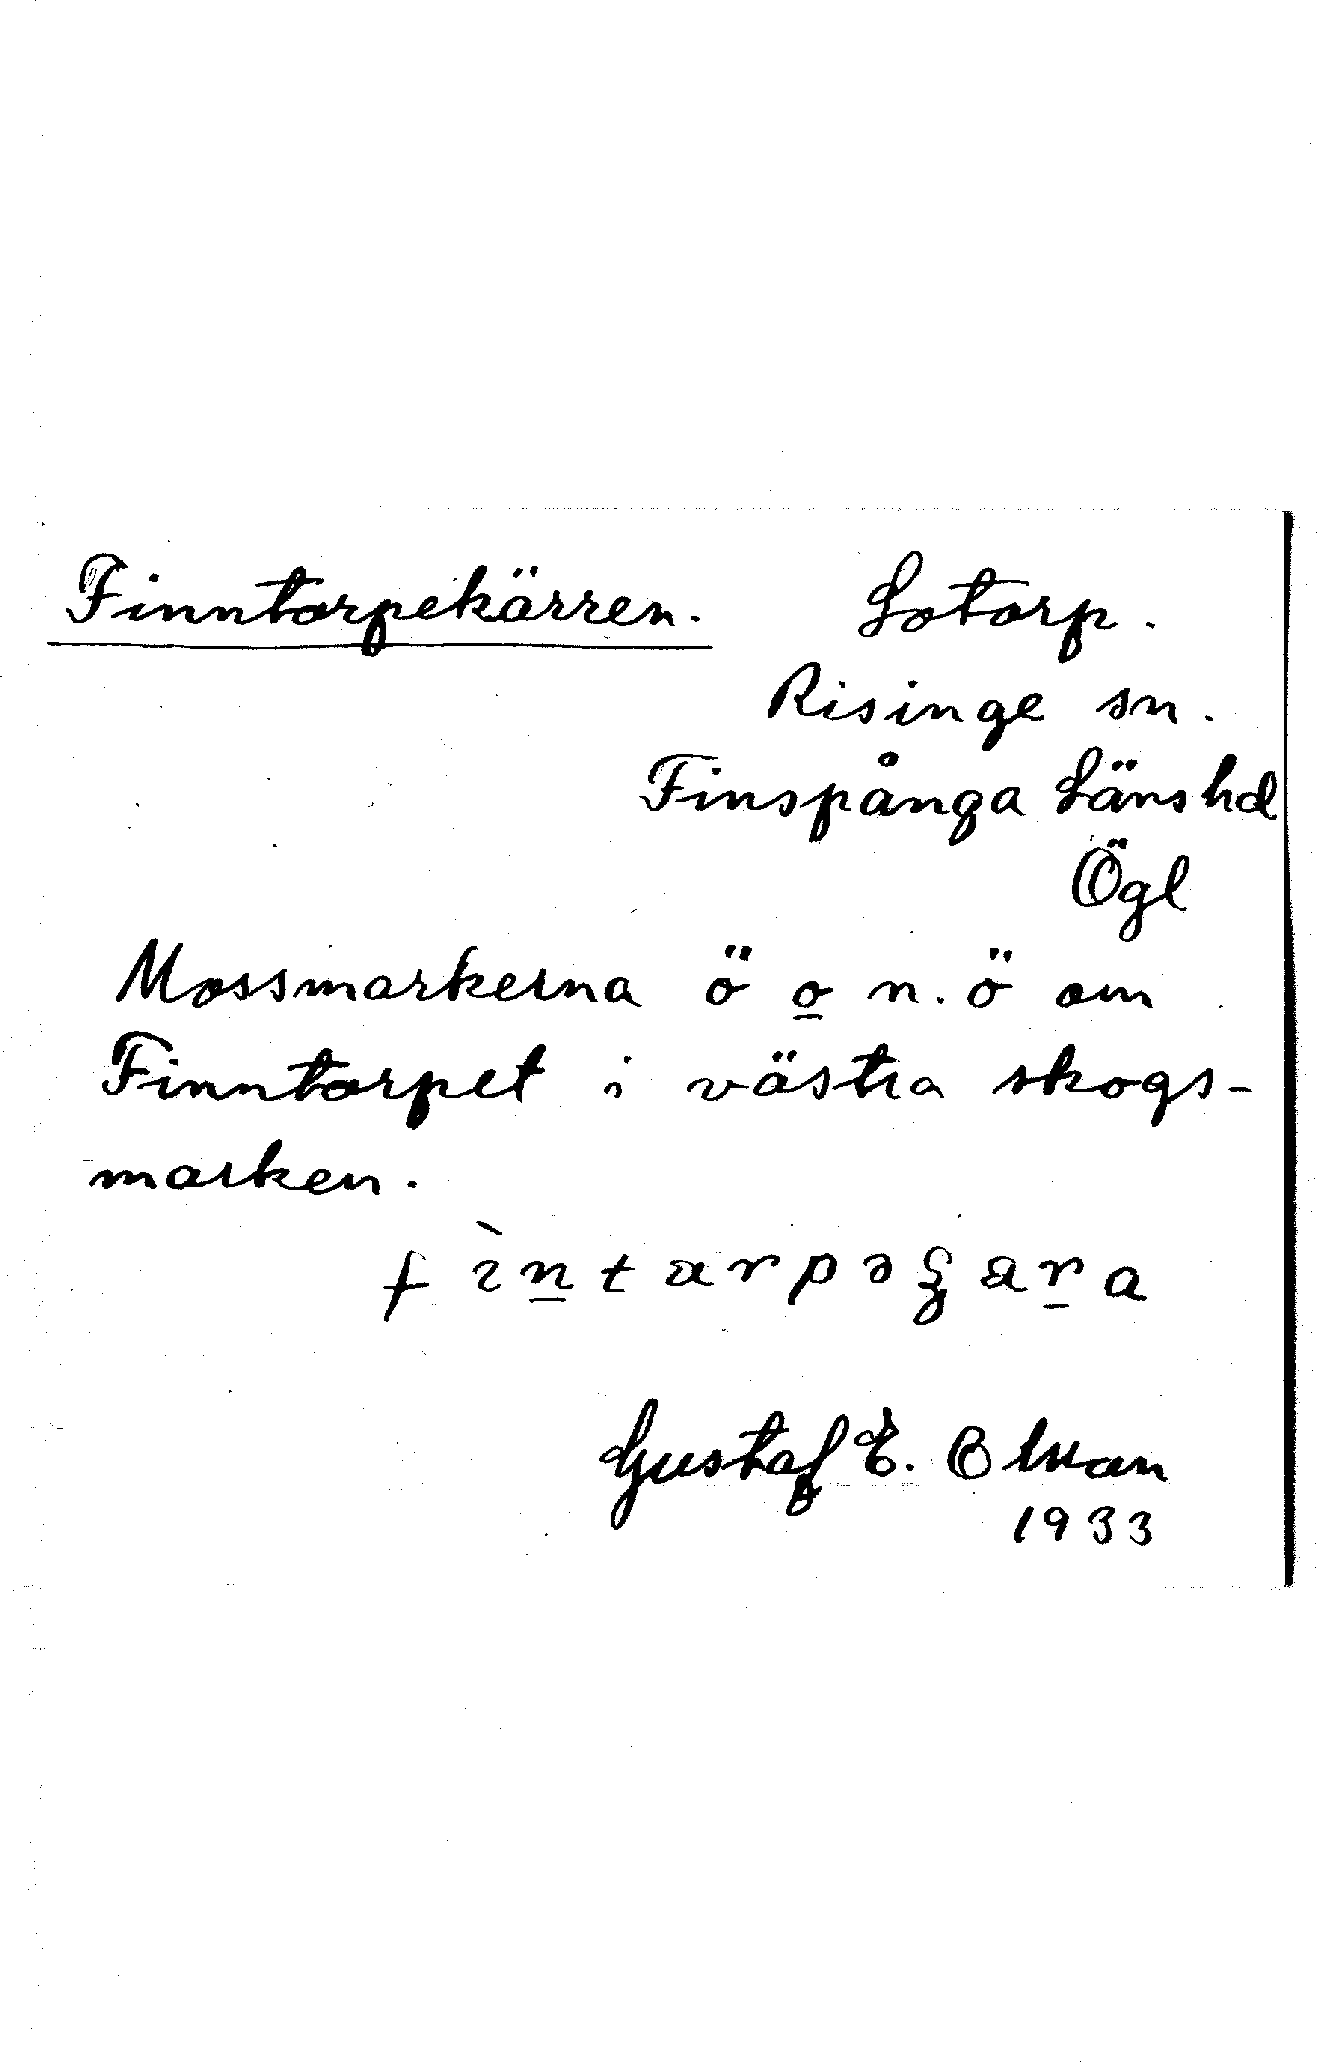 Finntorpekärren. Lotorp.
Risinge sn.
Finspånga Länshd
Ögl
Mossmarkerna ö o n. ö om
Finntorpet i västra skogs-
marken.
Gustaf E.
1933